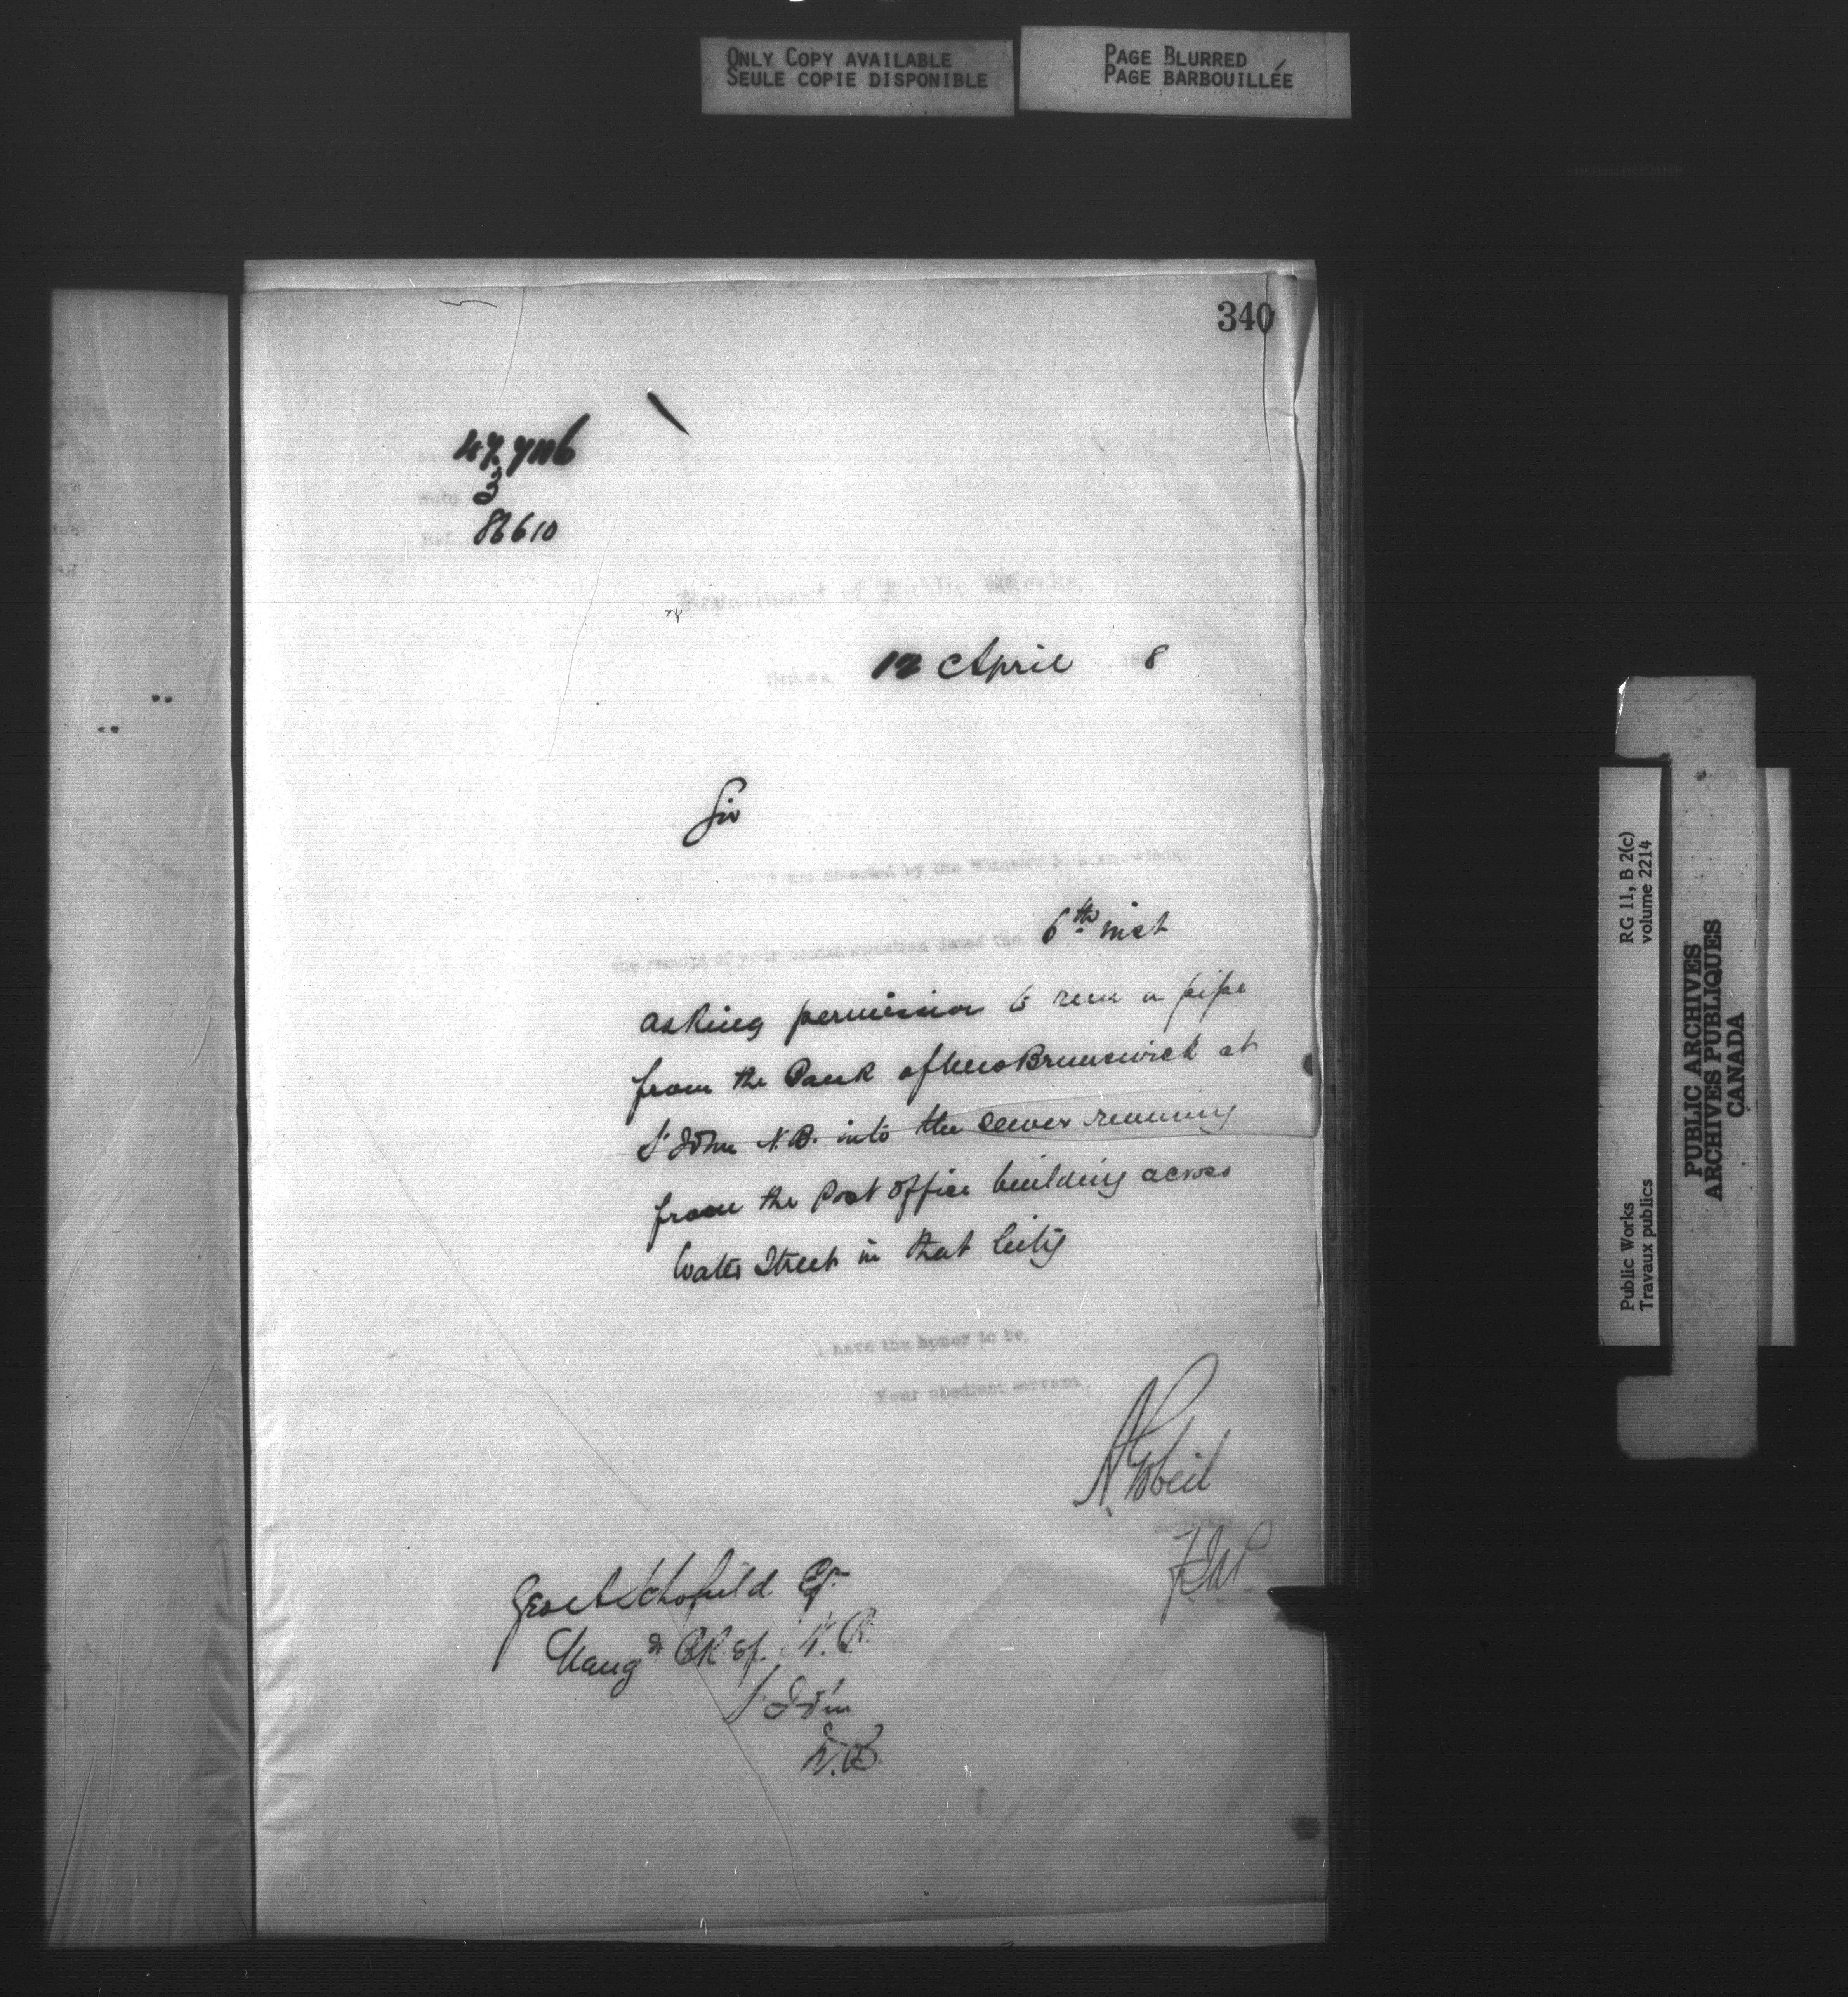 ONLY COPY AVAILABLE
SEULE COPIE DISPONIBLE
PAGE BLURRED
PAGE BARBOUILLÉE
340
Subj. 3
Ref. 86610
Department of Public Works,
Ottawa, 12 April 188
Sir
I am directed by the Minister to acknowledge
the receipt of your communication dated the 6th inst
asking permission to run a pipe
from the Bank of New Brunswick at
St John N.B. into the sewer running
from the Post Office building across
Water Street in that City
I have the honor to be,
Your obedient servant
A Gobeil
Secretary
Geo A Schofield Esq
Mang Bk of N.B.
St John
N.B.
RG 11, B 2(c)
volume 2214
Public Works
Travaux publics
PUBLIC ARCHIVES
ARCHIVES PUBLIQUES
CANADA